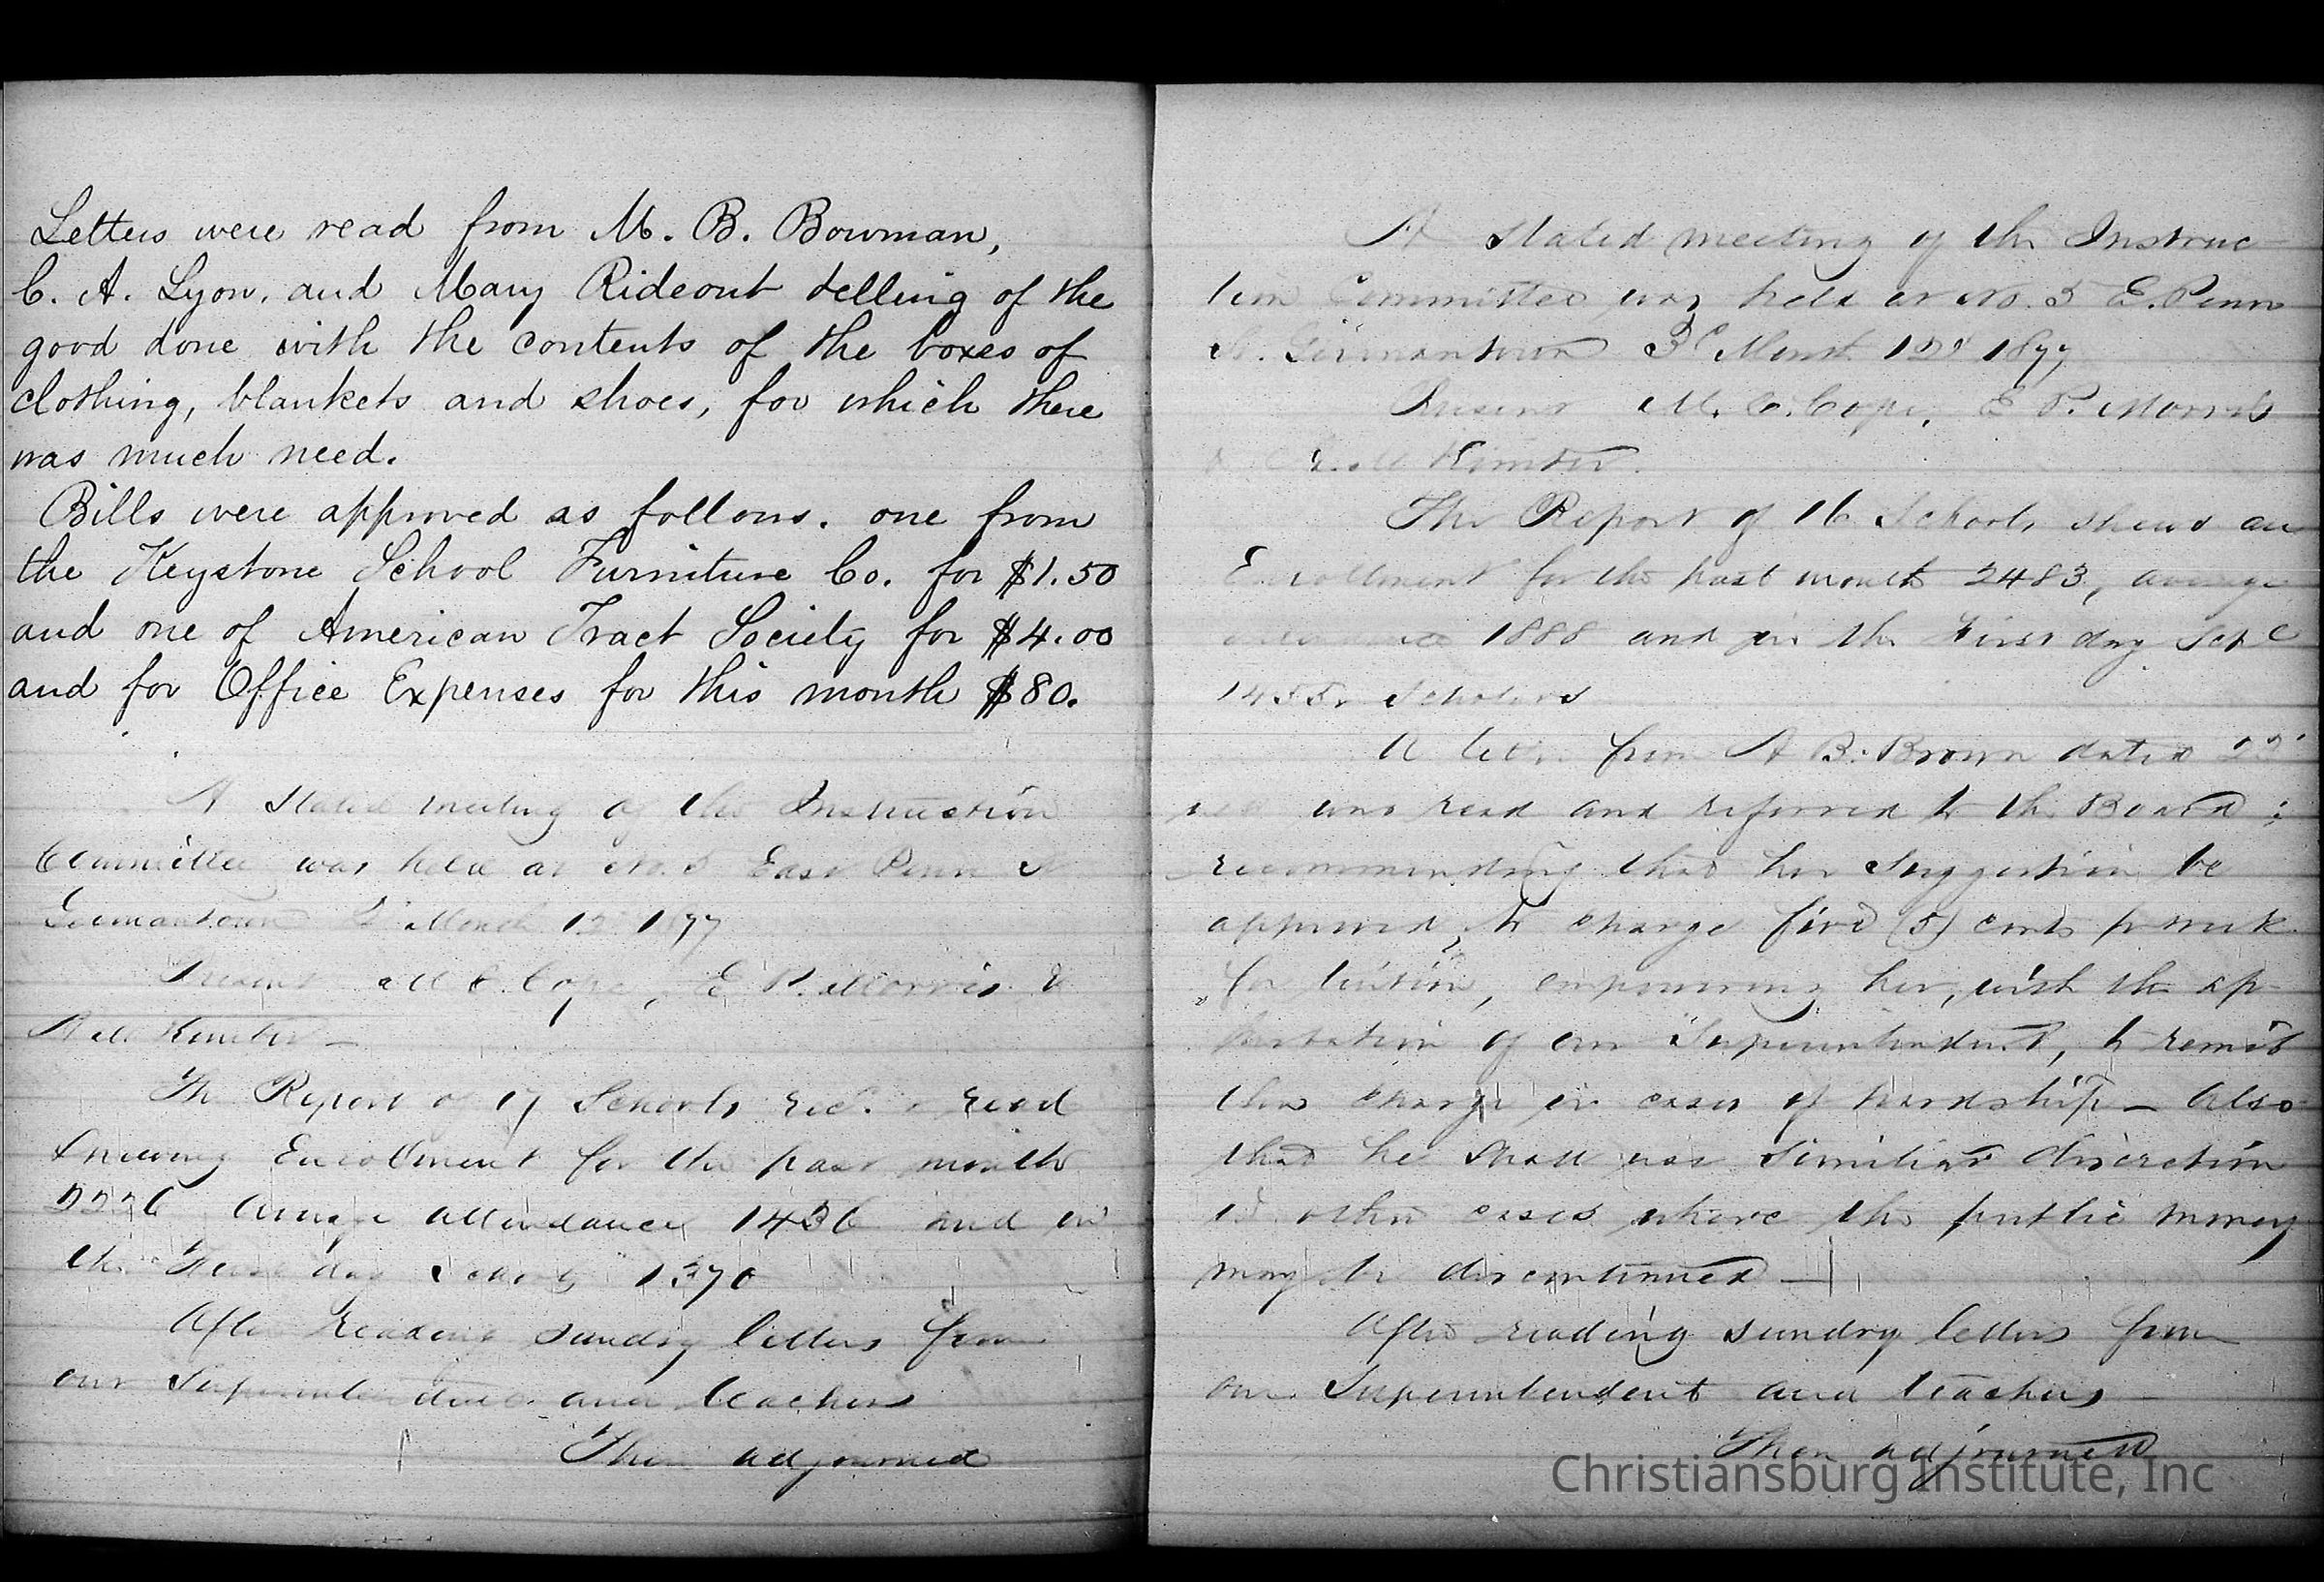 Letters were read from M. B. Bowman,
C. A. Lyon, and Mary Rideout telling of the
good done with the contents of the boxes of
clothing, blankets and shoes, for which there
was much need.
Bills were approved as follows. one from
the Keystone School Furniture Co. for $1.50
and one of American Tract Society for $4.00
and for Office Expenses for this month $80.
A Stated meeting of the Instruction
Committee was held at No. 5 East Penn St
Germantown Month 12 1897
Present M C. Cope, E P. Morris &
Kimber
The Report of 17 Schools rec'd. & read
Showing Enrollment for the past month
Average attendance 1436 and in
the First day Schools
After Reading sundry letters from
our Superintendent and teachers
Then adjourned
A Stated meeting of the Instruc-
tion Committee was held at No. 5 E. Penn
St. Germantown 3d Month 12th 1897
Present M. C. Cope, E P. Morris
& Kimber.
The Report of 16 Schools shows an
Enrollment for the past month 2483, average
attendance 1888 and in the First day Schls
Scholars
A letter from A B. Brown dated
was read and referred to the Board :
recommending that her Suggestion be
approved, to charge five (5) cents pr week
for tuition, empowering her, with the ap-
probation of our Superintendent, to remit
this charge in cases of hardship — Also
that he shall use similiar discretion
in other cases where the public money
may be discontinued —
After reading sundry letters from
our Superintendent and teachers —
Then adjourned
Christiansburg Institute, Inc